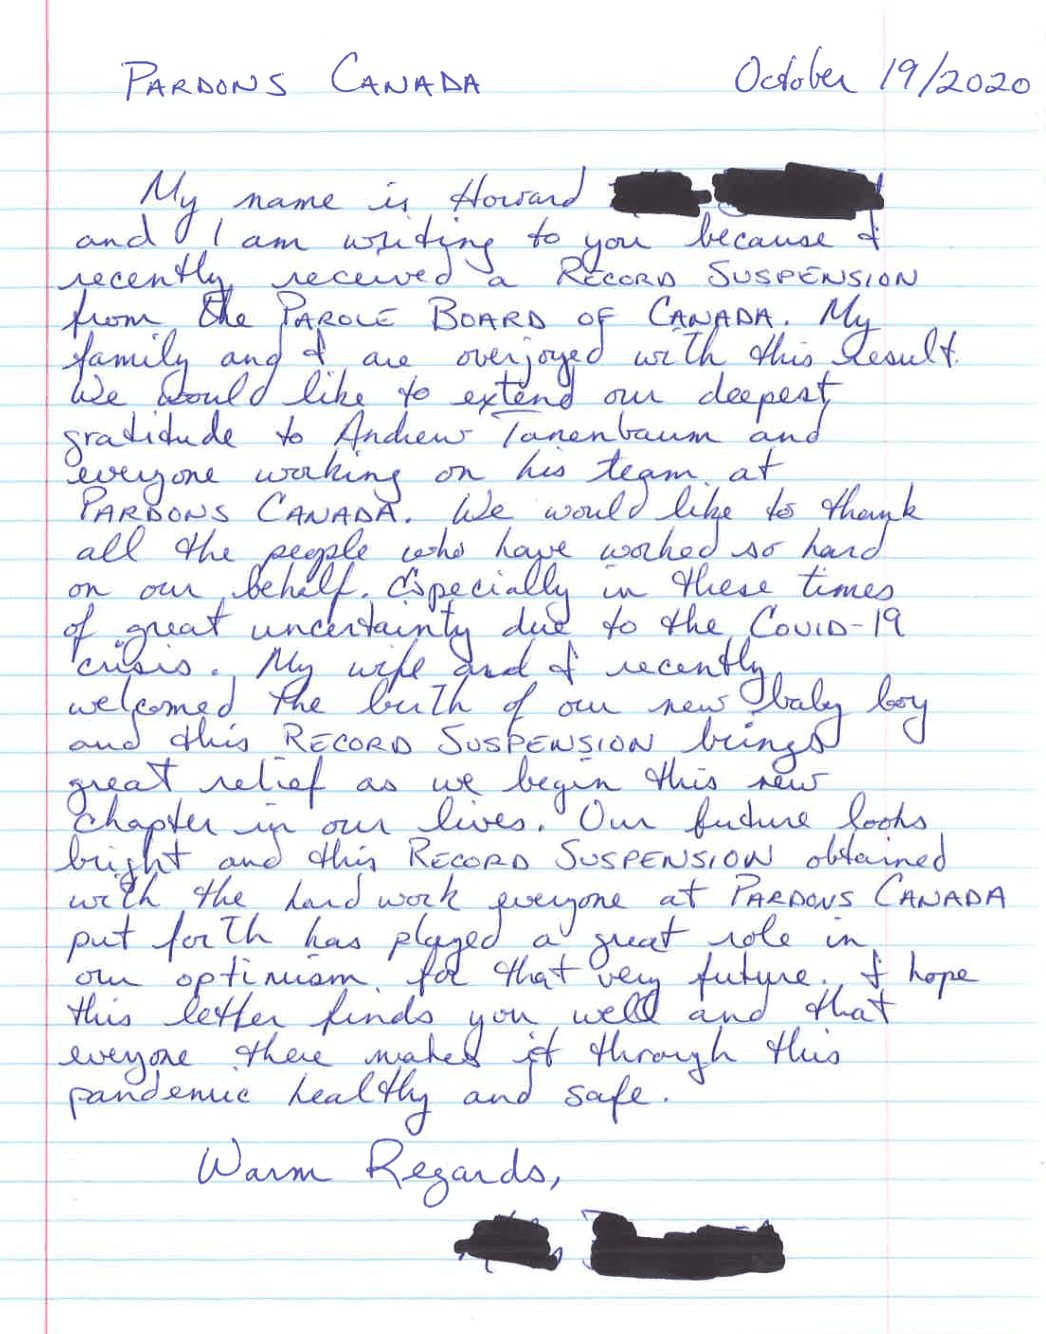 PARDONS CANADA October 19/2020
My name is Howard
and I am writing to you because I
recently received a RECORD SUSPENSION
from the PAROLE BOARD OF CANADA. My
family and I are overjoyed with this result.
We would like to extend our deepest
gratitude to Andrew Tanenbaum and
everyone working on his team at
PARDONS CANADA. We would like to thank
all the people who have worked so hard
on our behalf. Especially in these times
of great uncertainty due to the COVID-19
crisis. My wife and I recently
welcomed the birth of our new baby boy
and this RECORD SUSPENSION brings
great relief as we begin this new
chapter in our lives. Our future looks
bright and this RECORD SUSPENSION obtained
with the hard work everyone at PARDONS CANADA
put forth has played a great role in
our optimism for that very future. I hope
this letter finds you well and that
everyone there makes it through this
pandemic healthy and safe.
Warm Regards,